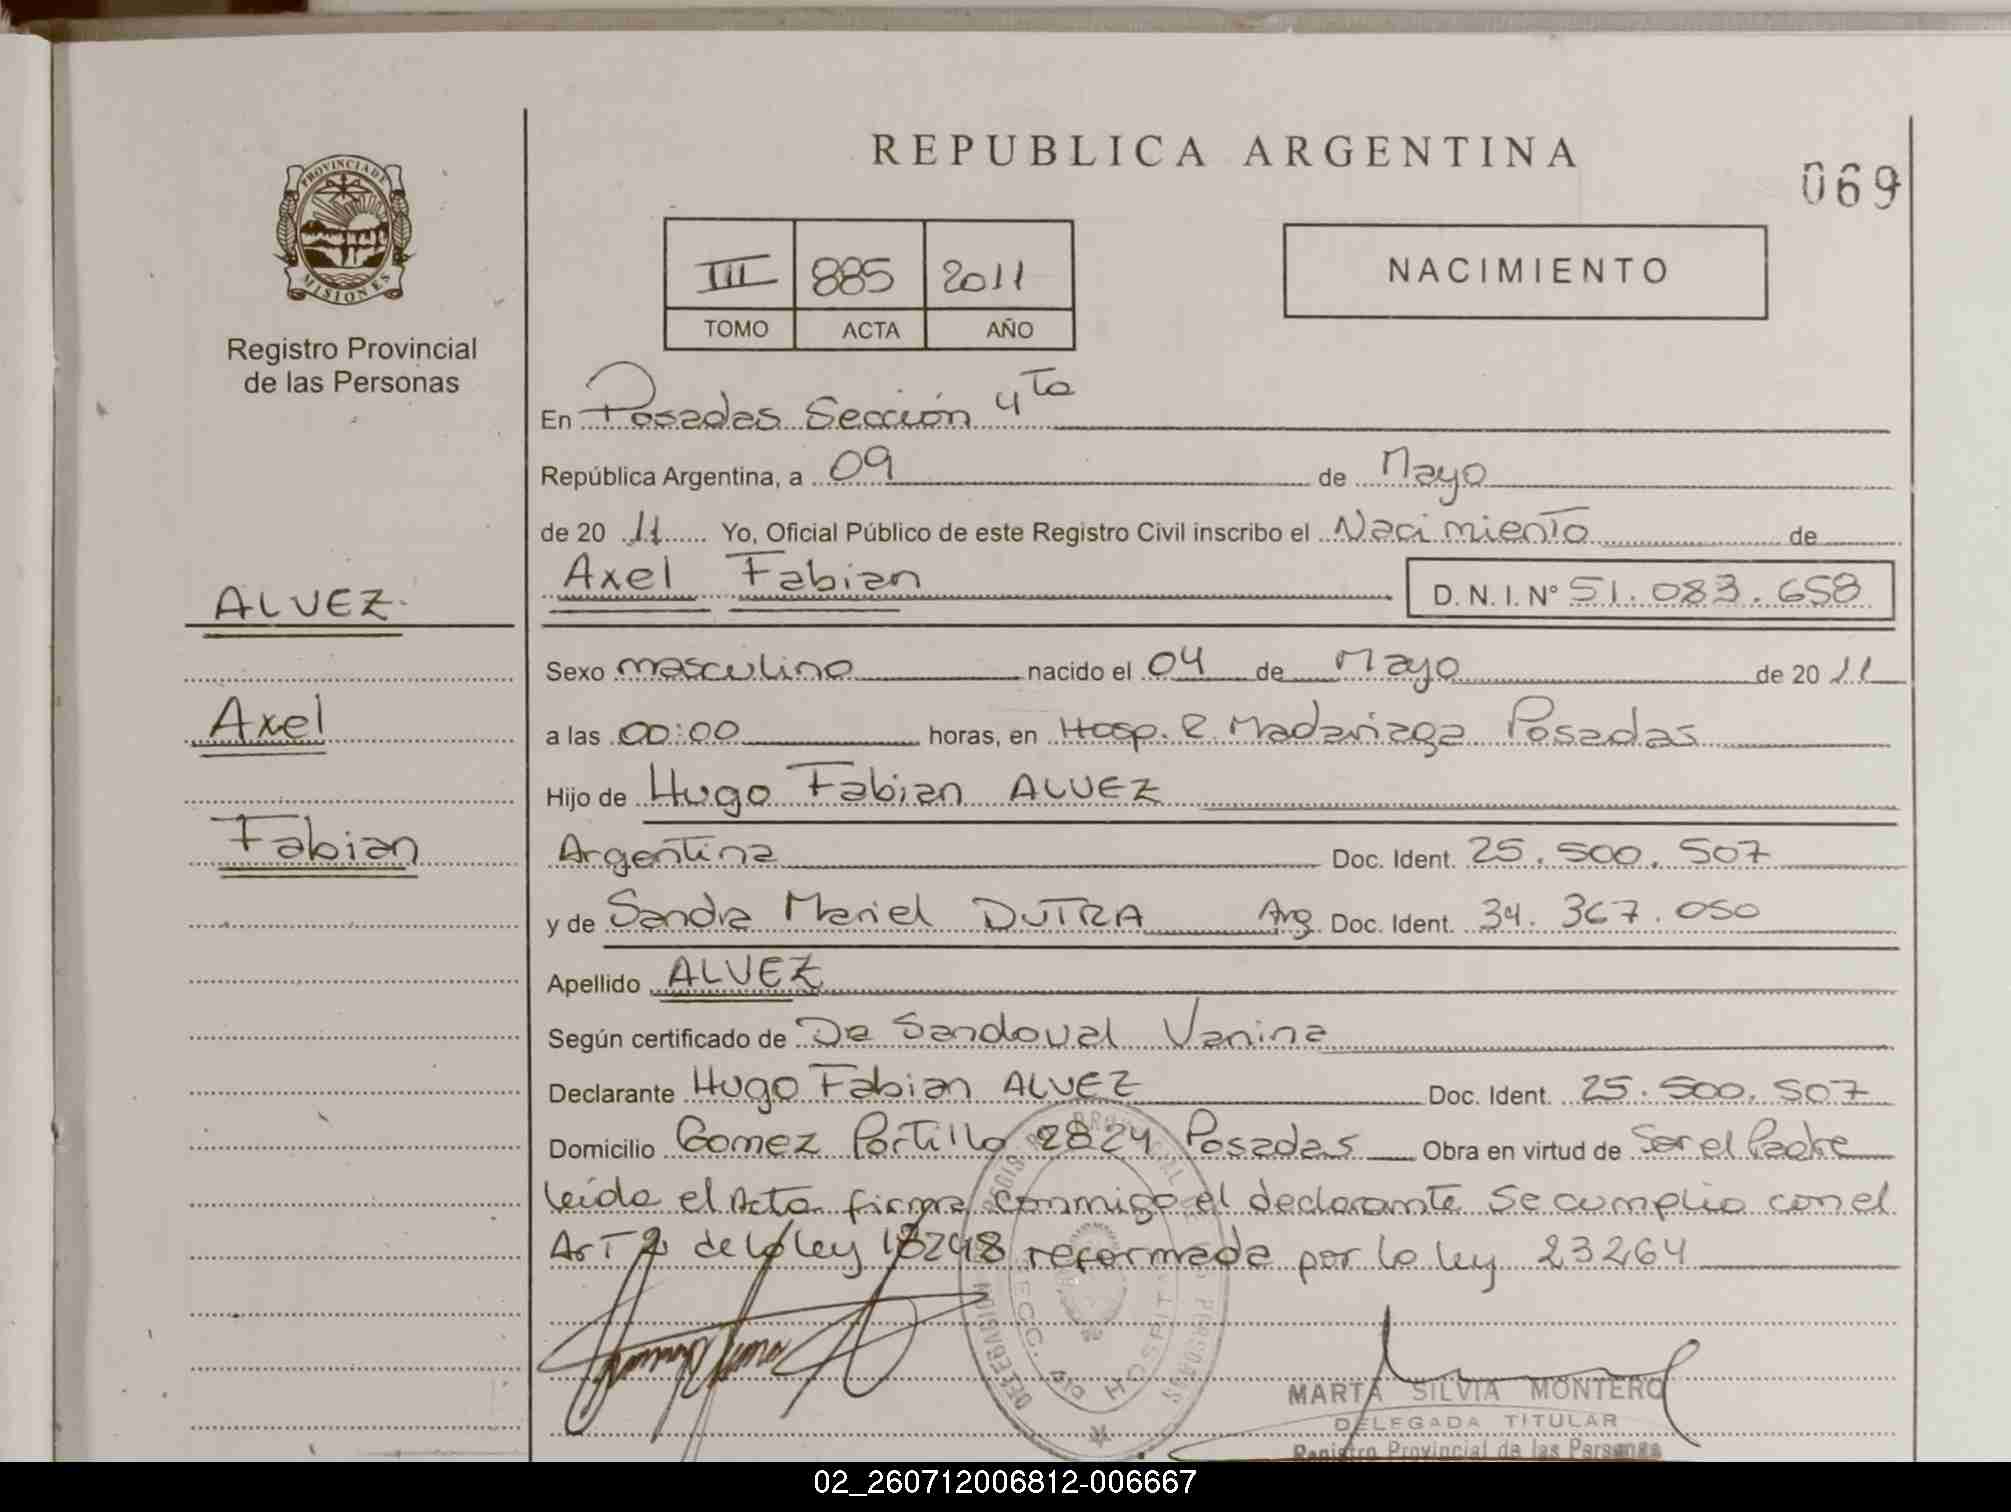 REPUBLICA ARGENTINA
069
PROVINCIA DE
MISIONES
Registro Provincial
de las Personas
III 885 2011
TOMO ACTA AÑO
NACIMIENTO
En Posadas Sección 4ta
República Argentina, a 09 de Mayo
de 20 11 Yo, Oficial Público de este Registro Civil inscribo el Nacimiento de
Axel Fabian D. N. I. Nº 51.083.658
ALVEZ
Axel
Fabian
Sexo masculino nacido el 04 de Mayo de 20 11
a las 00:00 horas, en Hosp. R. Madariaga Posadas
Hijo de Hugo Fabian ALVEZ
Argentina Doc. Ident. 25.500.507
y de Sandra Mariel DUTRA Arg Doc. Ident. 34.367.050
Apellido ALVEZ
Según certificado de Da Sandoval Vanina
Declarante Hugo Fabian ALVEZ Doc. Ident. 25.500.507
Domicilio Gomez Portillo 2824 Posadas Obra en virtud de Ser el Padre
leida el Acta firma conmigo el declarante Se cumplio con el
Art 2 de la ley 18248 reformada por la ley 23264
SECC. 4ta HOSPITAL
MARTA SILVIA MONTERO
DELEGADA TITULAR
Registro Provincial de las Personas
02_260712006812-006667